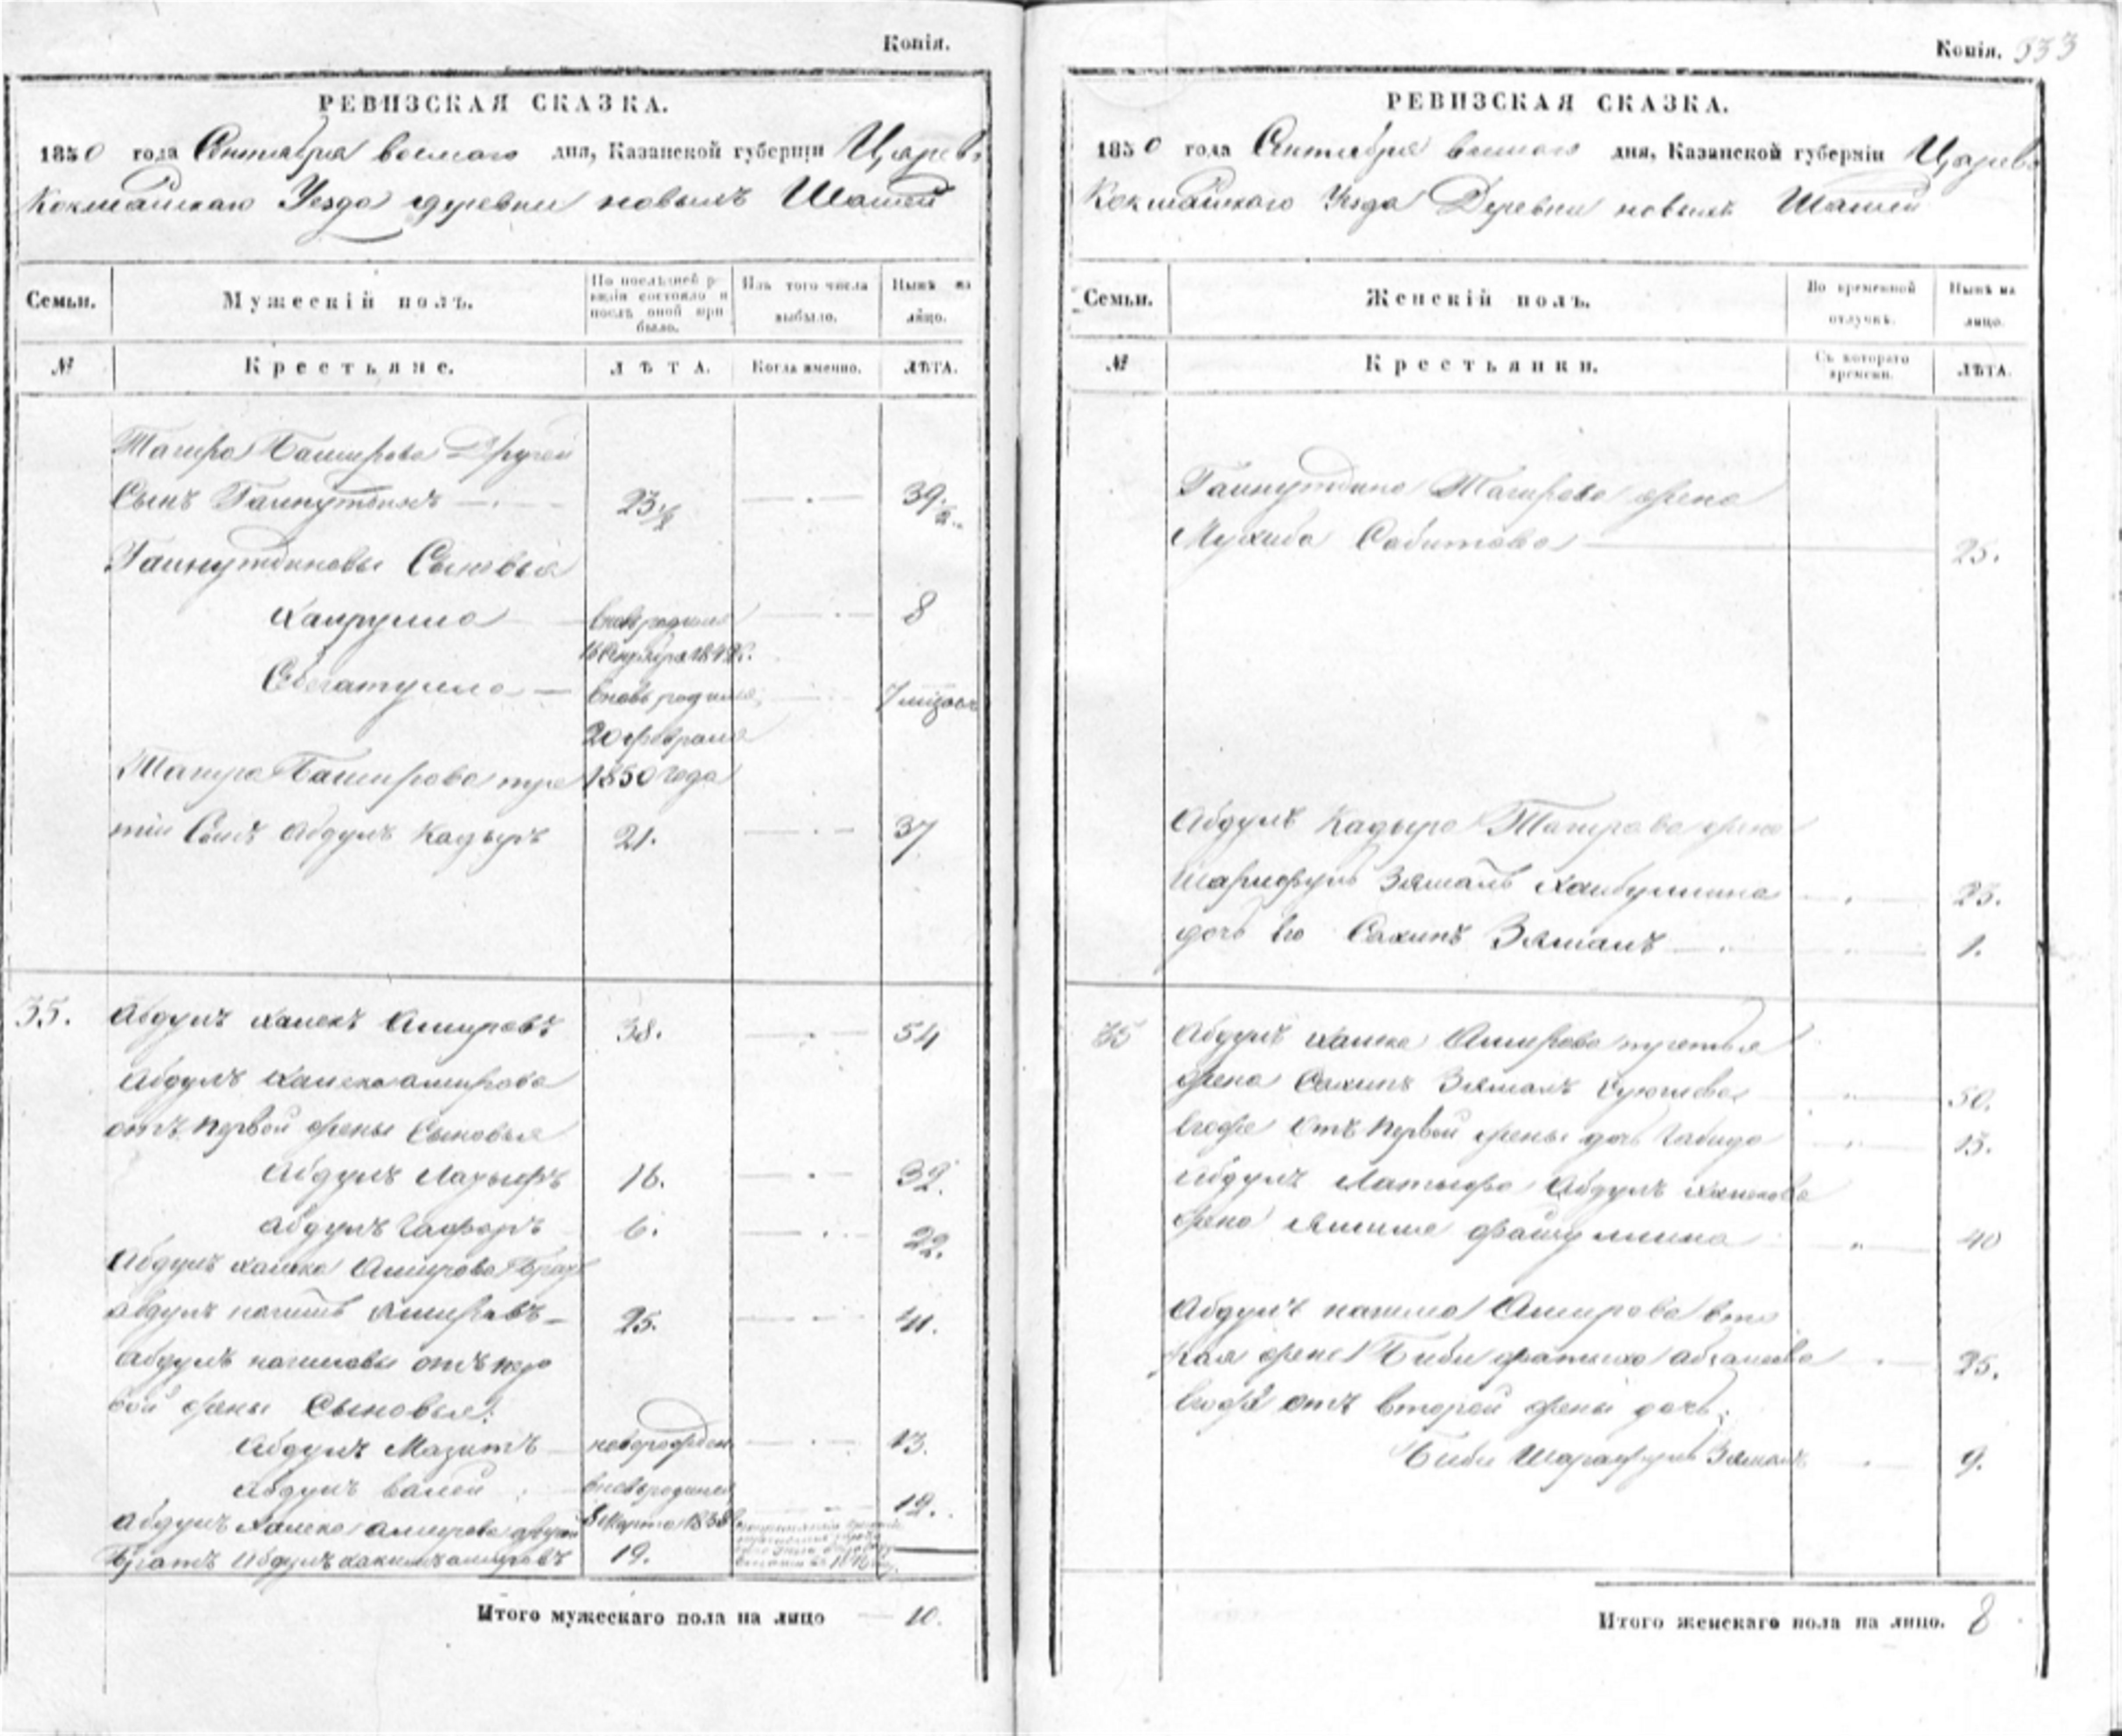 Копія.
РЕВИЗСКАЯ СКАЗКА.
1850 года Сентября восмаго дня, Казанской губерніи Царево
Кокшайскаго Уезда деревни новыхъ Шашей
Семьи.
Мужескій полъ.
По послѣдней ре-
визіи состояло и
послѣ оной при
было.
Изъ того числа
выбыло.
Нынѣ на
лицо.
№
Крестьяне.
ЛѢТА.
Когда именно.
ЛѢТА.
Тагира Баширова Другой
Сынъ Гайнутдинъ 23 1/2 39 1/2
Гайнутдиновы Сыновья
Хайрулла вновь родился 8
16 Сентября 1842г.
вновь родился 7 місяц
20 февраля
Тагира Баширова тре 1850 года
тій Сынъ Абдулъ Кадыръ 21. 37
35. Абдулъ Халекъ Амировъ 38. 54
Абдулъ Халека амирова
отъ первой жены Сыновья
Абдулъ Латыфъ 16. 32.
Абдулъ Гафаръ 6. 22.
Абдулъ Халека Амирова Братъ
Абдулъ Амировъ 25. 41.
Абдулъ отъ пер
вой жены Сыновья:
Абдулъ Мазитъ новорожден 13.
Абдулъ Валей вновь родился 12.
Абдулъ Халека амирова другой 8 Марта 1838
Братъ Абдулъ Хакимъ амировъ 19.
Итого мужескаго пола на лицо 10.
Копія. 333
РЕВИЗСКАЯ СКАЗКА.
1850 года Сентября восмаго дня, Казанской губерніи Царево
Кокшайскаго Уезда Деревни новыхъ Шашей
Семьи.
Женскій полъ.
Во временной
отлучкѣ.
Нынѣ на
лицо.
№
Крестьянки.
Съ котораго
времени.
ЛѢТА.
Гайнутдина Тагирова жена
Мухиба Сабитова 25.
Абдулъ Кадыра Тагирова жена
Зямалъ Хайбуллина 23.
дочь его Сахипъ Зямалъ 1.
35 Абдулъ Халека Амирова третья
жена Сахипъ Зямалъ 50.
Егоже Отъ Первой жены дочь Габида 13.
Абдулъ Латыфа Абдулъ Халекова
жена 40
Абдулъ Амирова вто
рая жена Биби фатыха 25.
Егожъ отъ второй жены дочь:
Биби Зямалъ 9.
Итого женскаго пола на лицо. 8